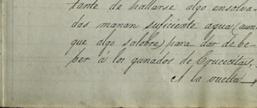 tante de hallarse algo ensolva-
das manan suficiente agua, (aun
que algo salobre) para dar de be-
ber á los ganados de
A la vuelta